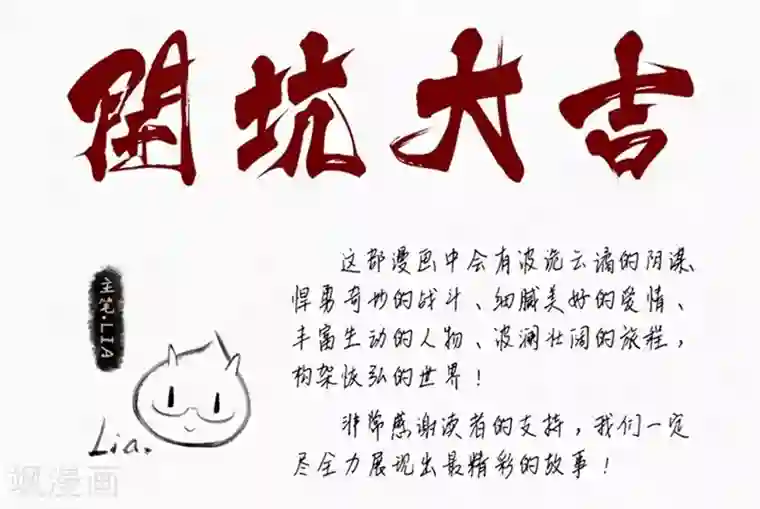 開坑大吉
这部漫画中会有波诡云谲的阴谋、
悍勇奇妙的战斗、细腻美好的爱情、
丰富生动的人物、波澜壮阔的旅程，
构架恢弘的世界！
非常感谢读者的支持，我们一定
尽全力展现出最精彩的故事！
主笔·LIA
Lia.
飒漫画